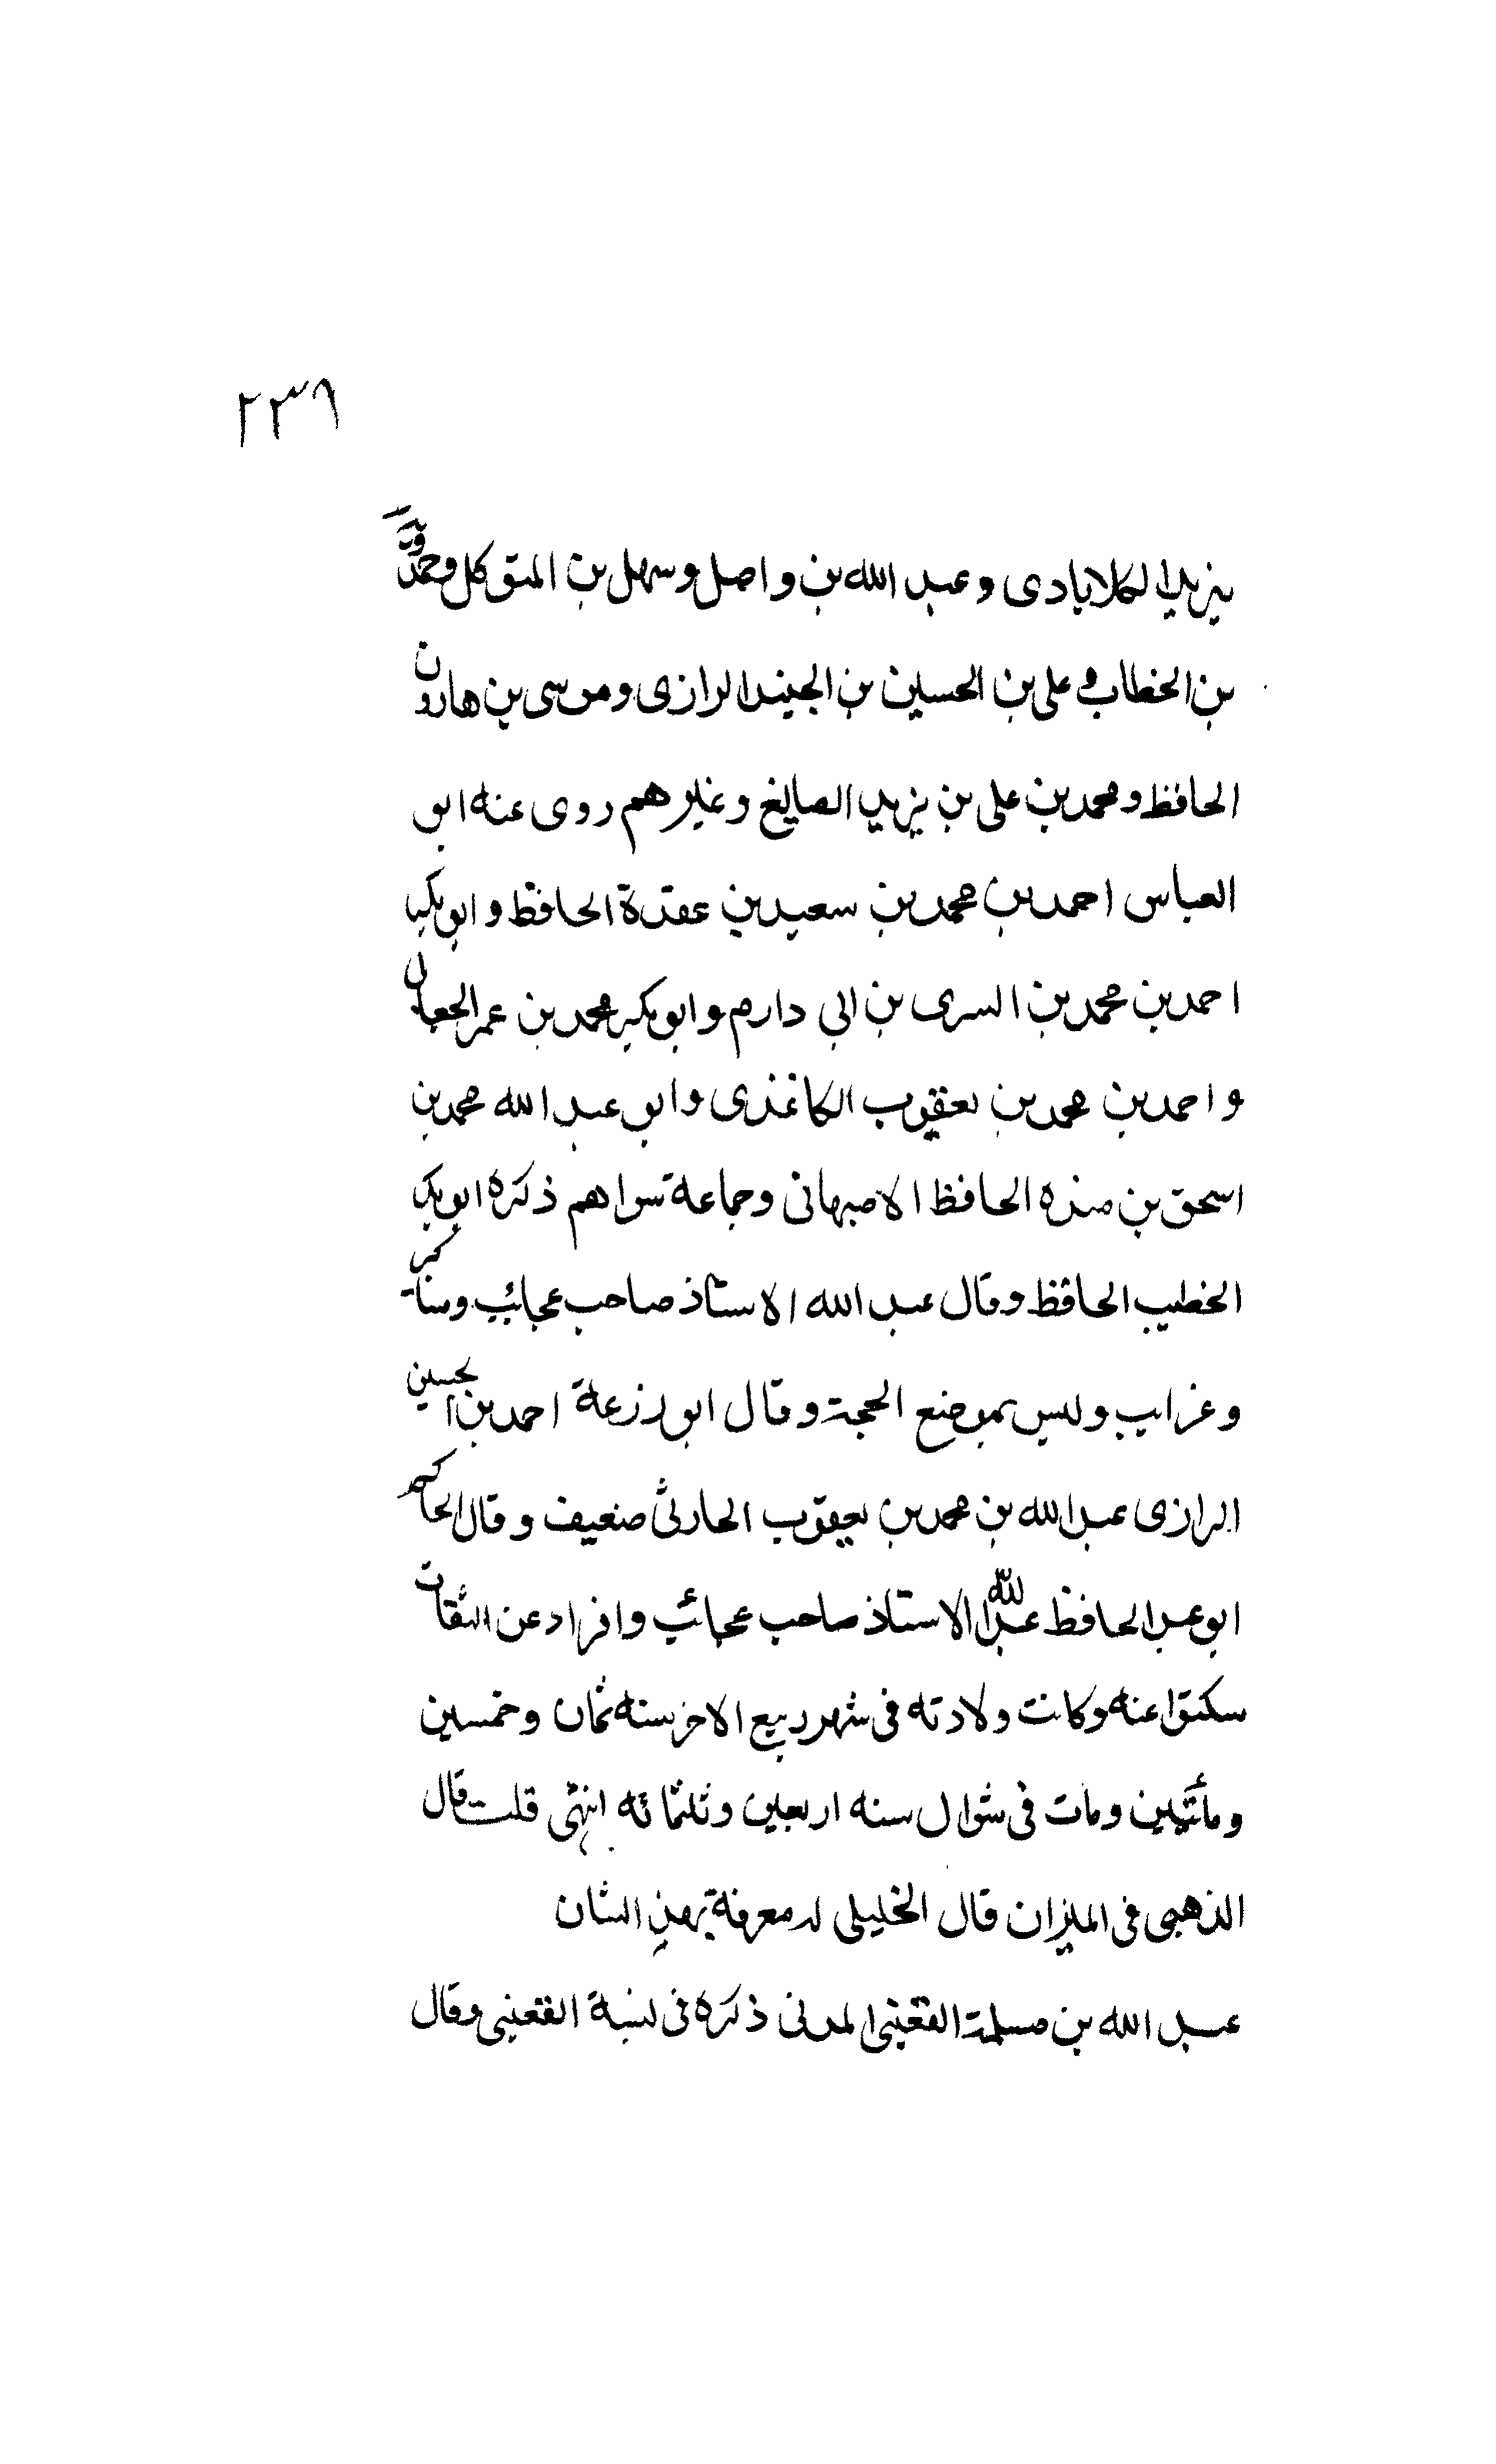 ٢٣٩
يزيد الكلاباذى و عبد الله بن واصل و سهل بن المتوكل وحمدويه
بن الخطاب و على بن الحسين بن الجنيد الرازى و موسى بن هارون
الحافظ و محمد بن على بن يزيد الصايغ و غيرهم روى عنه ابو
العباس احمد بن محمد بن سعيد بن عقدة الحافظ و ابو بكر
احمد بن محمد بن السرى بن ابى دارم و ابو بكر محمد بن عمر الجعابى
و احمد بن محمد بن يعقوب الكاغذى و ابو عبد الله محمد بن
اسحق بن منده الحافظ الاصبهانى و جماعة سواهم ذكره ابو بكر
الخطيب الحافظ و قال عبد الله الاستاذ صاحب عجائب و مناكر
و غرايب و ليس بموضع الحجة و قال ابو زرعة احمد بن الحسين
الرازى عبد الله بن محمد بن يعقوب الحارثى ضعيف و قال الحاكم
ابو عبد الحافظ عبد الله الاستاذ صاحب عجائب و افراد عن الثقات
سكتوا عنه و كانت ولادته فى شهر ربيع الاخر سنه ثمان و خمسين
و مأتين و مات فى شوال سنه اربعين و ثلثمائه انتهى قلت قال
الذهبى فى الميزان قال الخليلى له معرفة بهذ الشان
عبد الله بن مسلمة القعنبى المدنى ذكره فى نسبة القعنبى و قال